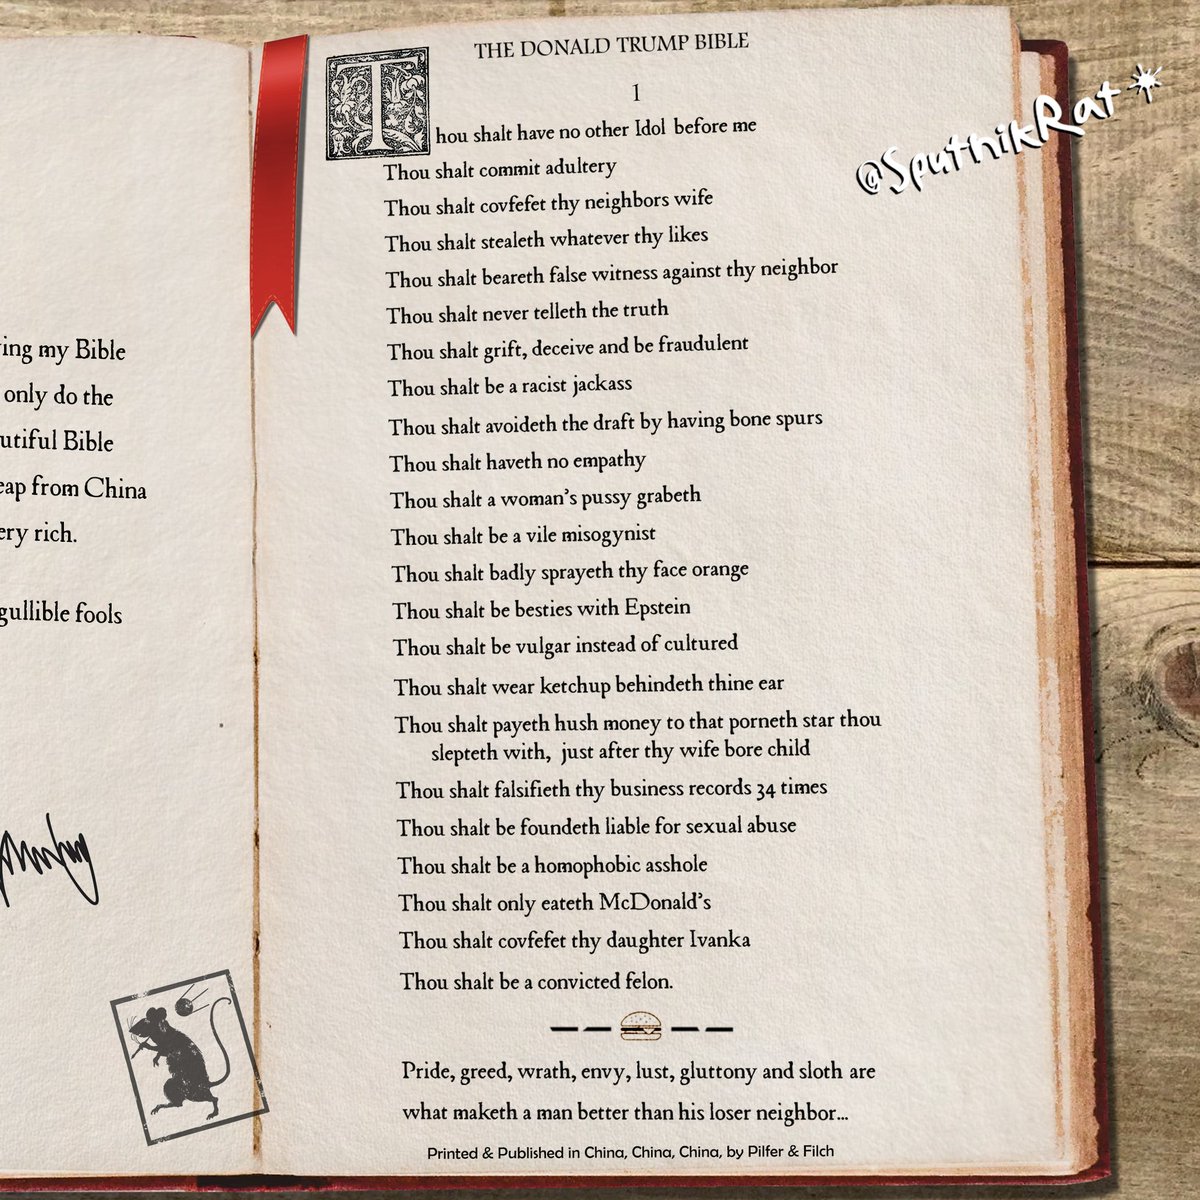 ing my Bible
only do the
utiful Bible
eap from China
ery rich.
gullible fools
THE DONALD TRUMP BIBLE
1
Thou shalt have no other Idol before me
Thou shalt commit adultery
Thou shalt covfefet thy neighbors wife
Thou shalt stealeth whatever thy likes
Thou shalt beareth false witness against thy neighbor
Thou shalt never telleth the truth
Thou shalt grift, deceive and be fraudulent
Thou shalt be a racist jackass
Thou shalt avoideth the draft by having bone spurs
Thou shalt haveth no empathy
Thou shalt a woman's pussy grabeth
Thou shalt be a vile misogynist
Thou shalt badly sprayeth thy face orange
Thou shalt be besties with Epstein
Thou shalt be vulgar instead of cultured
Thou shalt wear ketchup behindeth thine ear
Thou shalt payeth hush money to that porneth star thou
slepteth with, just after thy wife bore child
Thou shalt falsifieth thy business records 34 times
Thou shalt be foundeth liable for sexual abuse
Thou shalt be a homophobic asshole
Thou shalt only eateth McDonald's
Thou shalt covfefet thy daughter Ivanka
Thou shalt be a convicted felon.
Pride, greed, wrath, envy, lust, gluttony and sloth are
what maketh a man better than his loser neighbor...
Printed & Published in China, China, China, by Pilfer & Filch
@SputnikRat